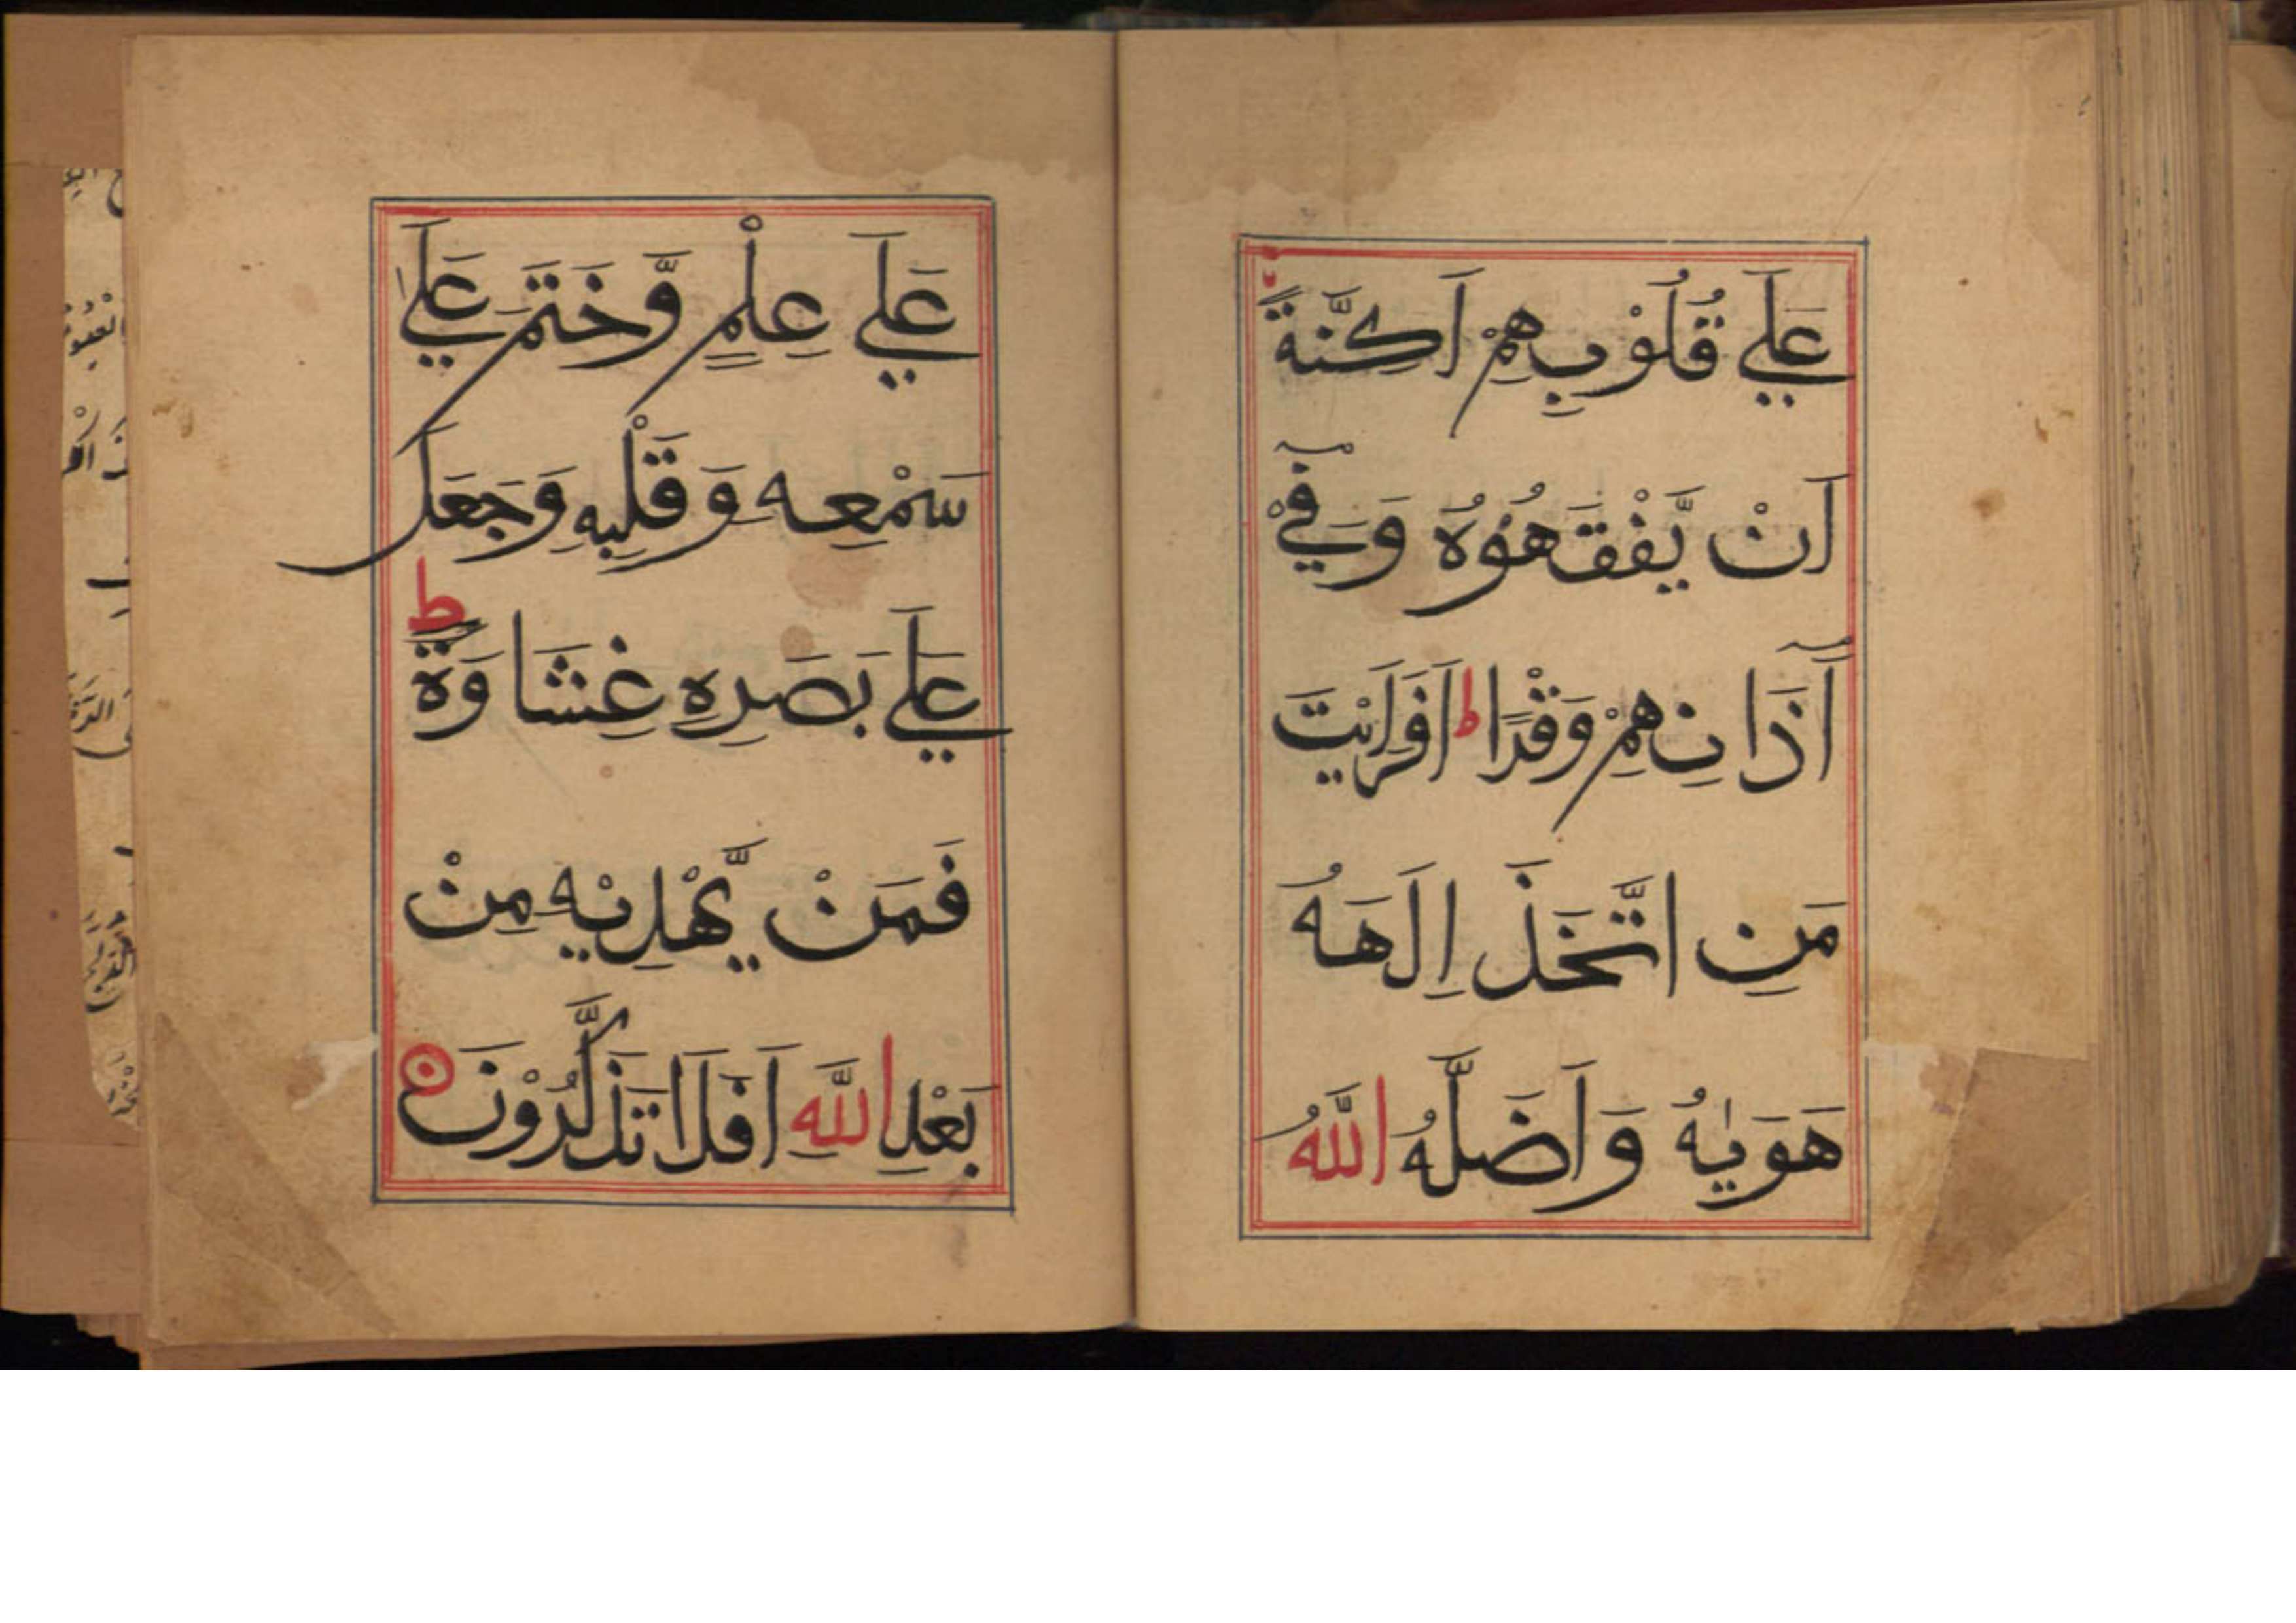 عَلَي قُلُوْبِهِمْ اَكِنَّةً
اَنْ يَّفْقَهُوْهُ وَفِيْٓ
آٰذَانِهِمْ وَقْرًا ط اَفَرَاَيْتَ
مَنِ اتَّخَذَ اِلَهَهُ
هَوَيٰهُ وَاَضَلَّهُ اللَّهُ
عَلَي عِلْمٍ وَّخَتَمَ عَلَي
سَمْعِه وَقَلْبِهِ وَجَعَلَ
عَلَي بَصَرِهِ غِشَاوَةً ط
فَمَنْ يَّهْدِيْهِ مِنْ
بَعْدِ اللَّهِ اَفَلَا تَذَكَّرُوْنَ